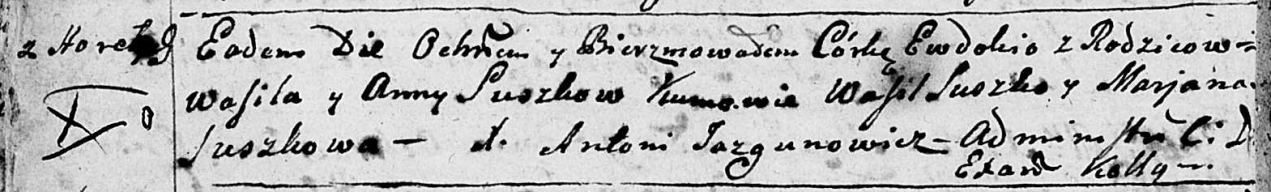 z Horek Eadem Die Ochrzcm y Bierzmowadem Córkę Ewdokią z Rodzicow
Wasila y Anny Suszkow Kumowie Wasil Suszko y Marjana
Suszkowa — X. Antoni Jazgunowicz Administr C: D